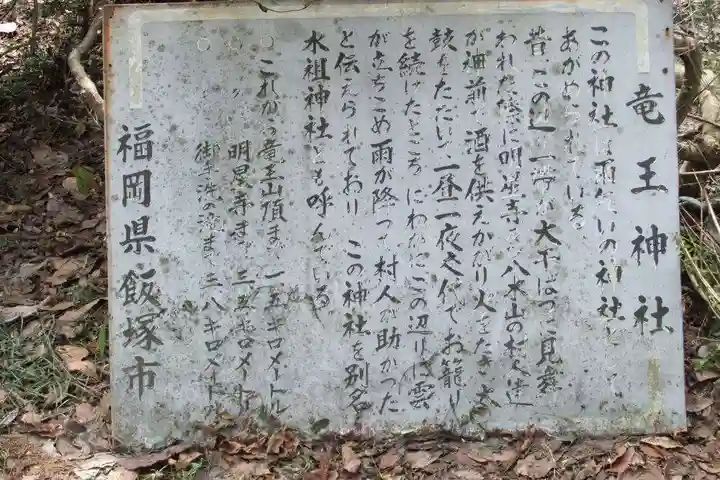 竜王神社
この神社は雨乞いの神社として
あがめられている。
昔この辺り一帯が大干ばつに見舞
われた時に明星寺 八木山の村人達
が神前に酒を供えかがり火をたき太
鼓をたたいて一昼一夜交代でお籠り
を続けたところにわかにこの辺りに雲
が立ちこめ雨が降って村人が助かった
と伝えられており この神社を別名
水祖神社とも呼んでいる。
○これから竜王山頂まで 一、五キロメートル
○〃 明星寺まで 三、五キロメートル
○〃 御手洗の滝まで 三、八キロメートル
福岡県飯塚市